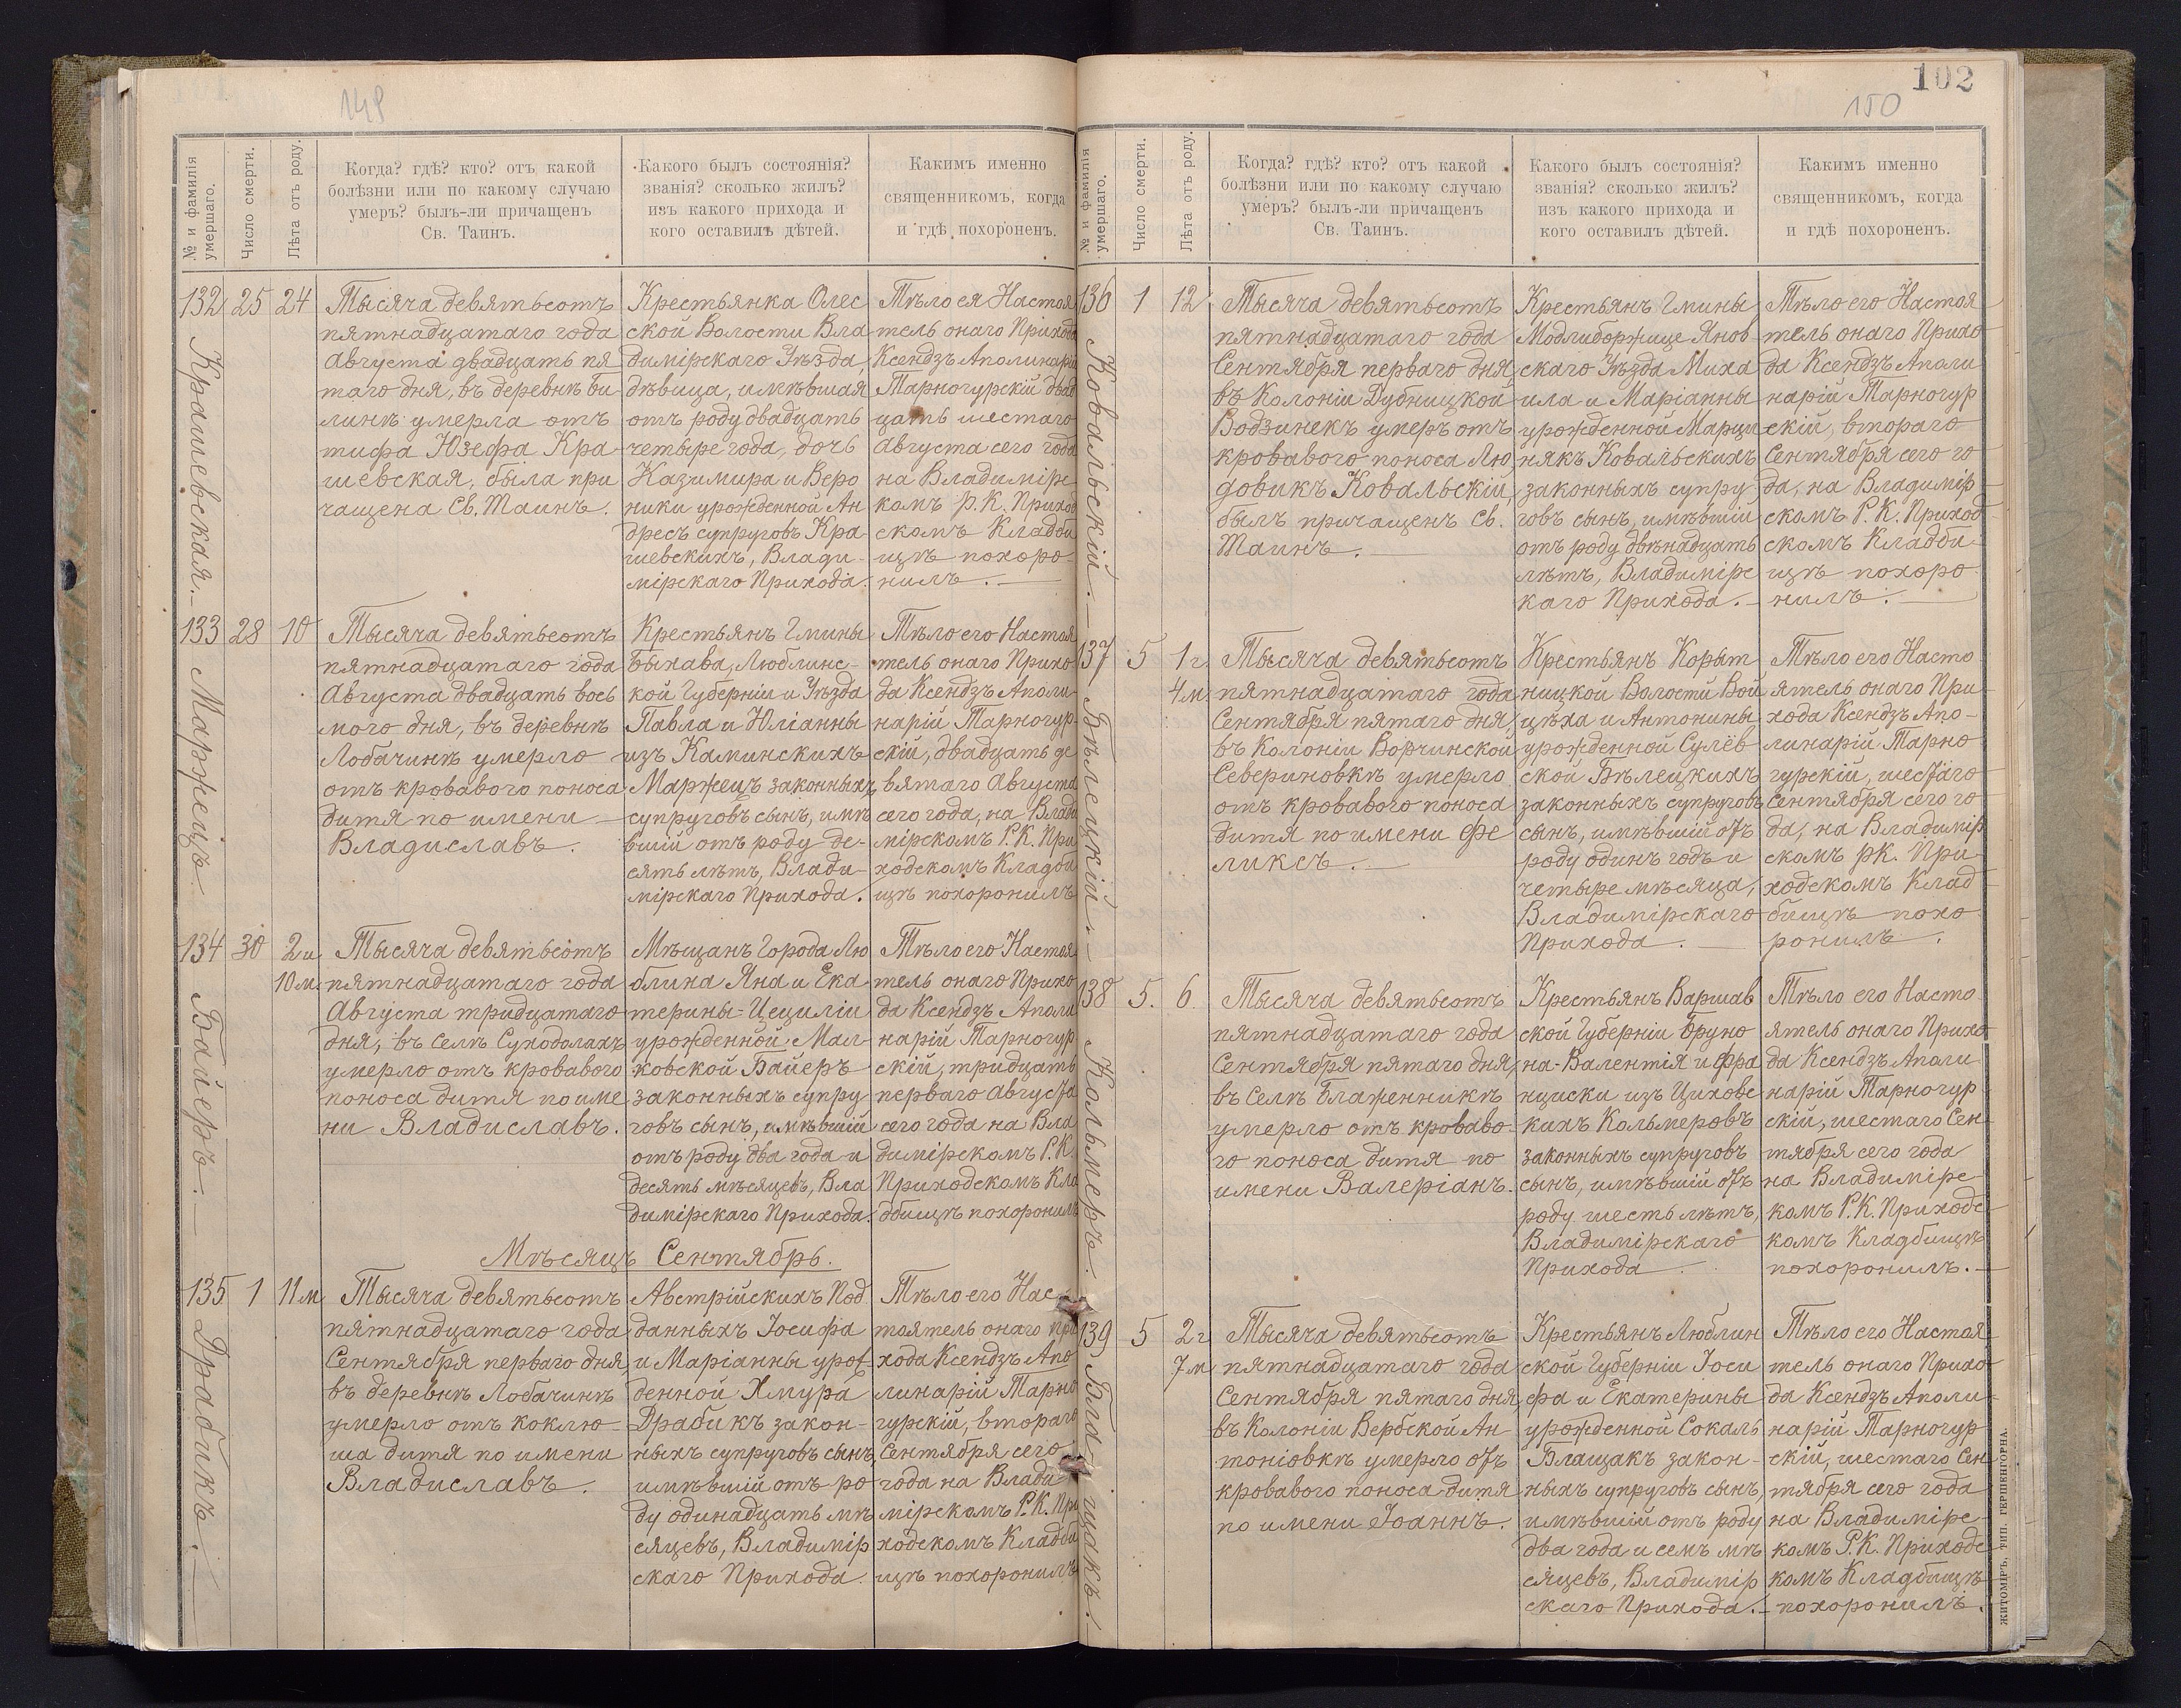 149
№ и фамилія умершаго.
Число смерти.
Лѣта отъ роду.
Когда? гдѣ? кто? отъ какой
болѣзни или по какому случаю
умеръ? былъ-ли причащенъ
Св. Таинъ.
Какого былъ состоянія?
званія? сколько жилъ?
изъ какого прихода и
кого оставилъ дѣтей.
Какимъ именно
священникомъ, когда
и гдѣ похороненъ.
132
Крашевская.
25
24
Тысяча девятьсотъ
пятнадцатаго года
Августа двадцать пя
таго дня, въ деревнѣ Би
линѣ умерла отъ
тифа Юзефа Кра
шевская, была при
чащена Св. Таинъ.
Крестьянка Олес
ской Волости Вла
димірскаго Уѣзда,
дѣвица, имѣвшая
отъ роду двадцать
четыре года, дочь
Казимира и Веро
ники урожденной Ан
дресъ супруговъ Кра
шевскихъ, Влади-
мірскаго Прихода.
Тѣло ея Настоя
тель онаго Прихода
Ксендзъ Аполинарій
Тарногурскій двад
цать шестаго
Августа сего года
на Владимірс
комъ Р. К. Приход
скомъ Кладби
щѣ похоро-
нилъ.
133
Маржецъ
28
10
Тысяча девятьсотъ
пятнадцатаго года
Августа двадцать вось
мого дня, въ деревнѣ
Лобачинѣ умерло
отъ кроваваго поноса
дитя по имени
Владиславъ.
Крестьянъ Гмины
Быхава, Люблинс-
кой Губерніи и Уѣзда
Павла и Юліанны
изъ Каминскихъ
Маржецъ законныхъ
супруговъ сынъ, имѣ
вшій отъ роду де-
сять лѣтъ, Влади-
мірскаго Прихода.
Тѣло его Настоя
тель онаго Прихо
да Ксендзъ Аполи-
нарій Тарногур-
скій, двадцать де
вятаго Августа
сего года, на Влади
мірскомъ Р. К. При
ходскомъ Кладби
щѣ похоронилъ
134
Байеръ.
30
2 и
10 м.
Тысяча девятьсотъ
пятнадцатаго года
Августа тридцатаго
дня, въ селѣ Суходолахъ
умерло отъ кроваваго
поноса дитя по име
ни Владиславъ.
Мѣщанъ Города Лю
блина Яна и Ека
терины-Цециліи
урожденной Мал-
ковской Байеръ
законныхъ супру
говъ сынъ, имѣвшій
отъ роду два года и
десять мѣсяцевъ, Вла
димірскаго Прихода.
Тѣло его Настоя
тель онаго Прихо
да Ксендзъ Аполи
нарій Тарногур
скій, тридцать
перваго Августа
сего года на Вла
димірскомъ Р. К.
Приходскомъ Кла
дбищѣ похоронилъ
Мѣсяцъ Сентябрь.
135
Драбикъ.
1
11 м
Тысяча девятьсотъ
пятнадцатаго года
Сентября перваго дня,
въ деревнѣ Лобачинѣ
умерло отъ коклю-
ша дитя по имени
Владиславъ.
Австрійскихъ Под
данныхъ Іосифа
и Маріанны урож
денной Хмура
Драбикъ закон-
ныхъ супруговъ сынъ,
имѣвшій отъ ро
ду одинадцать мѣ
сяцевъ, Владимір
скаго Прихода.
Тѣло его Нас
тоятель онаго При
хода Ксендзъ Апо
линарій Тарно
гурскій, втораго
Сентября сего
года на Влади
мірскомъ Р. К. При
ходскомъ Кладби
щѣ похоронилъ
102
150
№ и фамилія умершаго.
Число смерти.
Лѣта отъ роду.
Когда? гдѣ? кто? отъ какой
болѣзни или по какому случаю
умеръ? былъ-ли причащенъ
Св. Таинъ.
Какого былъ состоянія?
званія? сколько жилъ?
изъ какого прихода и
кого оставилъ дѣтей.
Какимъ именно
священникомъ, когда
и гдѣ похороненъ.
136
Ковальскій.
1
12
Тысяча девятьсотъ
пятнадцатаго года
Сентября перваго дня,
въ Колоніи Дубницкой
Водзинекъ умеръ отъ
кроваваго поноса Лю
довикъ Ковальскій,
былъ причащенъ Св.
Таинъ.
Крестьянъ Гмины
Модлиборжице Янов
скаго Уѣзда Миха
ила и Маріанны
урожденной Марци
някъ Ковальскихъ
законныхъ супру
говъ сынъ, имѣвшій
отъ роду двѣнадцать
лѣтъ, Владимірс
каго Прихода.
Тѣло его Настоя
тель онаго Прихо
да Ксендзъ Аполи
нарій Тарногур
скій, втораго
Сентября сего го
да, на Владимір
скомъ Р. К. Приход
скомъ Кладби
щѣ похоро
нилъ.
137
Бѣлецкій.
5
1 г.
4 м.
Тысяча девятьсотъ
пятнадцатаго года
Сентября пятаго дня,
въ Колоніи Ворчинской
Севериновкѣ умерло
отъ кроваваго поноса
дитя по имени Фе
ликсъ.
Крестьянъ Корыт
ницкой Волости Вой
цѣха и Антонины
урожденной Сулёв
ской Бѣлецкихъ
законныхъ супруговъ
сынъ, имѣвшій отъ
роду одинъ годъ и
четыре мѣсяца,
Владимірскаго
Прихода.
Тѣло его Насто
ятель онаго При
хода Ксендзъ Апо-
линарій Тарно
гурскій, шестаго
Сентября сего го
да, на Владимір
скомъ РК. При
ходскомъ Клад
бищѣ похо
ронилъ.
138
Кольмеръ.
5.
6.
Тысяча девятьсотъ
пятнадцатаго года
Сентября пятаго дня,
въ селѣ Блаженникѣ
умерло отъ кроваво
го поноса дитя по
имени Валеріанъ.
Крестьянъ Варшав
ской Губерніи Бруно
на-Валентія и Фра
нциски изъ Циховс
кихъ Кольмеровъ
законныхъ супруговъ
сынъ, имѣвшій отъ
роду шесть лѣтъ,
Владимірскаго
Прихода.
Тѣло его Насто
ятель онаго Прихо
да Ксендзъ Аполи
нарій Тарногур
скій, шестаго Сен-
тября сего года
на Владимірс
комъ Р. К. Приходс
комъ Кладбищѣ
похоронилъ.
139
Блащакъ.
5
2 г
7 м
Тысяча девятьсотъ
пятнадцатаго года
Сентября пятаго дня
въ Колоніи Вербской Ан
тоніовкѣ умерло отъ
кроваваго поноса дитя
по имени Іоаннъ.
Крестьянъ Люблин
ской Губерніи Іоси
фа и Екатерины
урожденной Сокаль
Блащакъ закон-
ныхъ супруговъ сынъ,
имѣвшій отъ роду
два года и семь мѣ
сяцевъ, Владимір
скаго Прихода.
Тѣло его Настоя
тель онаго Прихо
да Ксендзъ Аполи-
нарій Тарногур
скій, шестаго Сен
тября сего года
на Владимірс
комъ Р. К. Приходс
комъ Кладбищѣ
похоронилъ.
ЖИТОМІРЪ, ТИП. ГЕРШЕНГОРНА.